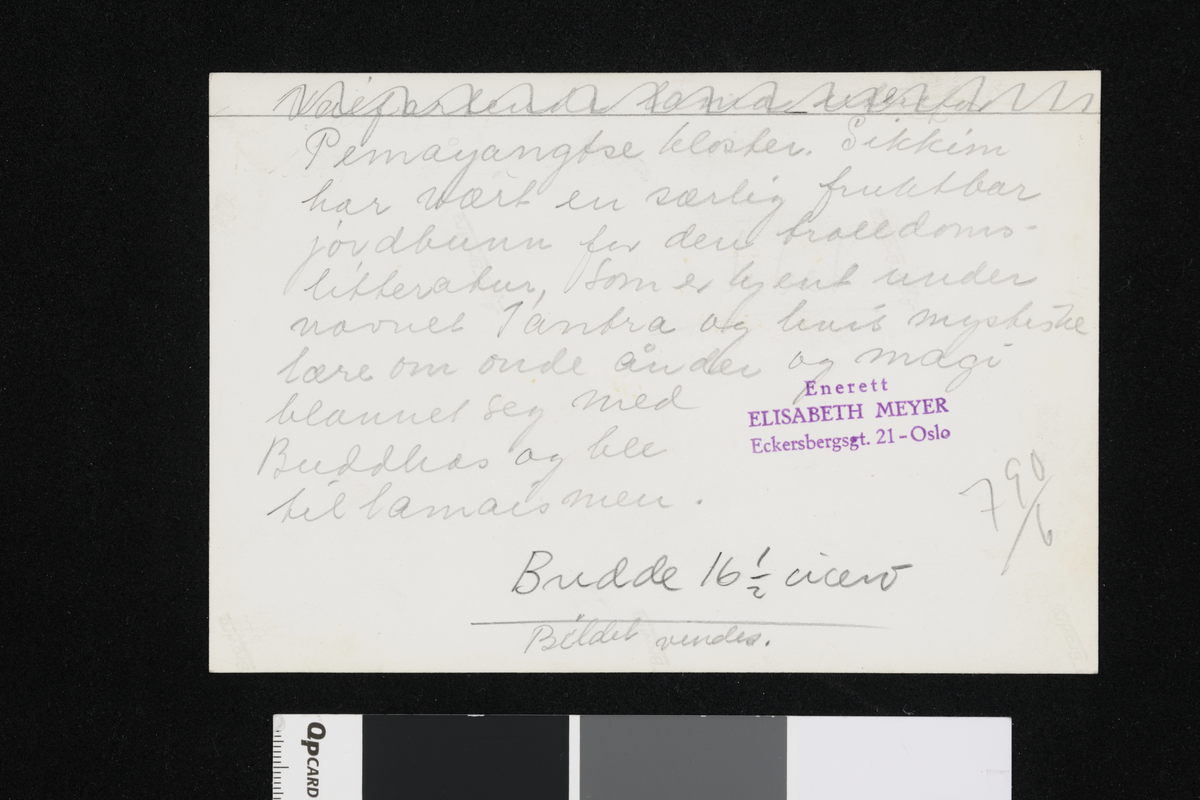 Veifarende lama
Pemayangtse kloster. Sikkim
har vært en særlig fruktbar
jordbunn for den trolldoms-
litteratur, som er kjent under
navnet Tantra og hvis mystiske
lære om onde ånder og magi
blannet seg med
Buddhas og ble
til lamaismen.
Enerett
ELISABETH MEYER
Eckersbergsgt. 21 – Oslo
7 90/6
Budde 16 1/2 cicero
Bildet vendes.
QPCARD